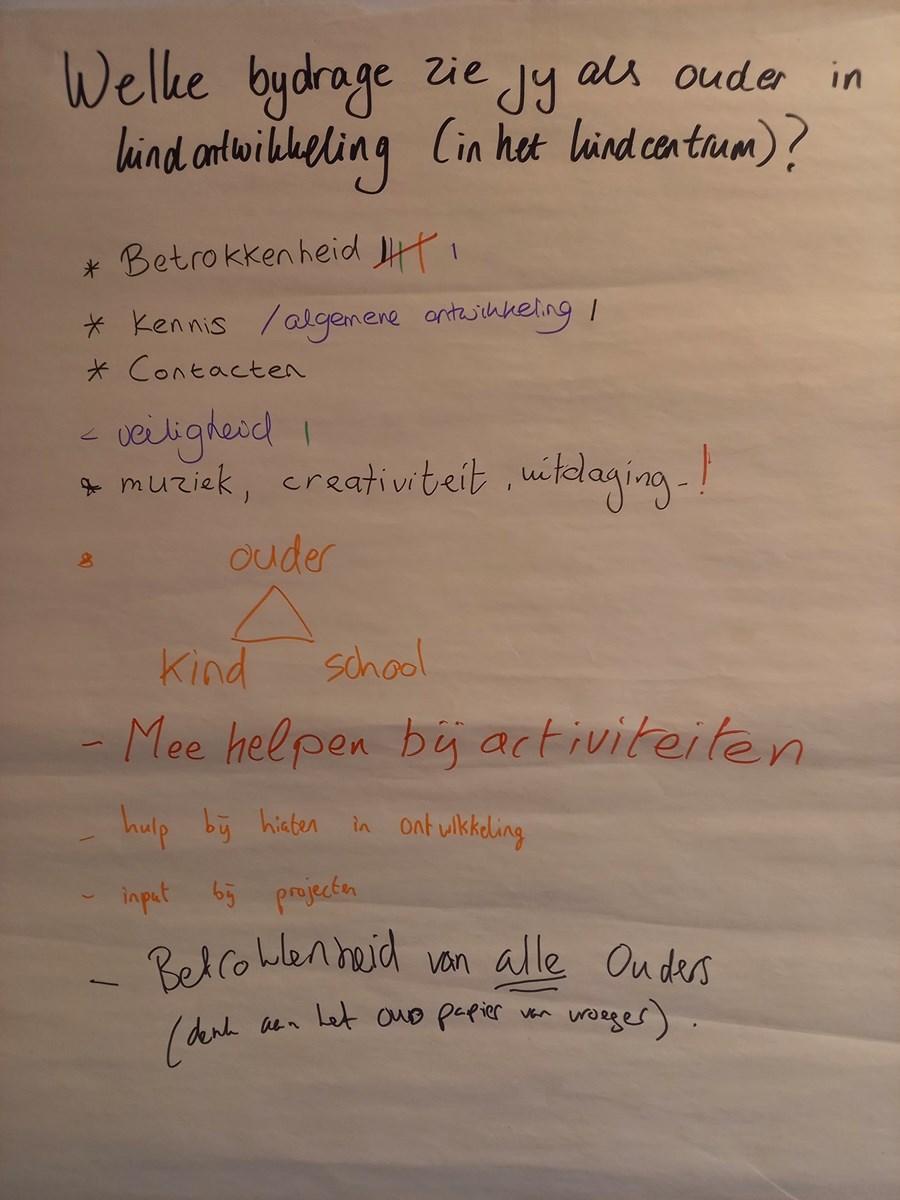 Welke bydrage zie jy als ouder in
kindontwikkeling (in het kindcentrum)?
* Betrokkenheid |||| |
* Kennis / algemene ontwikkeling |
* Contacten
- veiligheid |
* muziek, creativiteit, uitdaging - !
* ouder
kind school
- Mee helpen bij activiteiten
- hulp bij hiaten in ontwikkeling
- input bij projecten
- Betrokkenheid van alle Ouders
(denk aan het oud papier van vroeger).